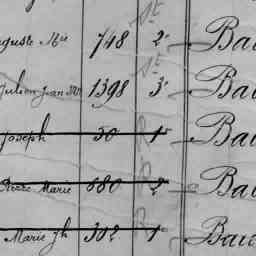 guste Mie 748 2e Bau
Julien Jean Mie 1398 3e Bau
Joseph 30 1e Bau
Pierre Marie 880 2e Bau
Marie Jh 302 1e Bau